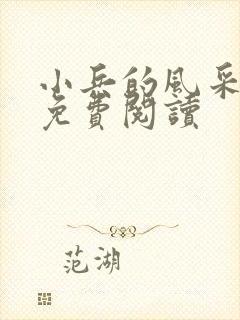 小岳的風采
免費閱讀
范湖